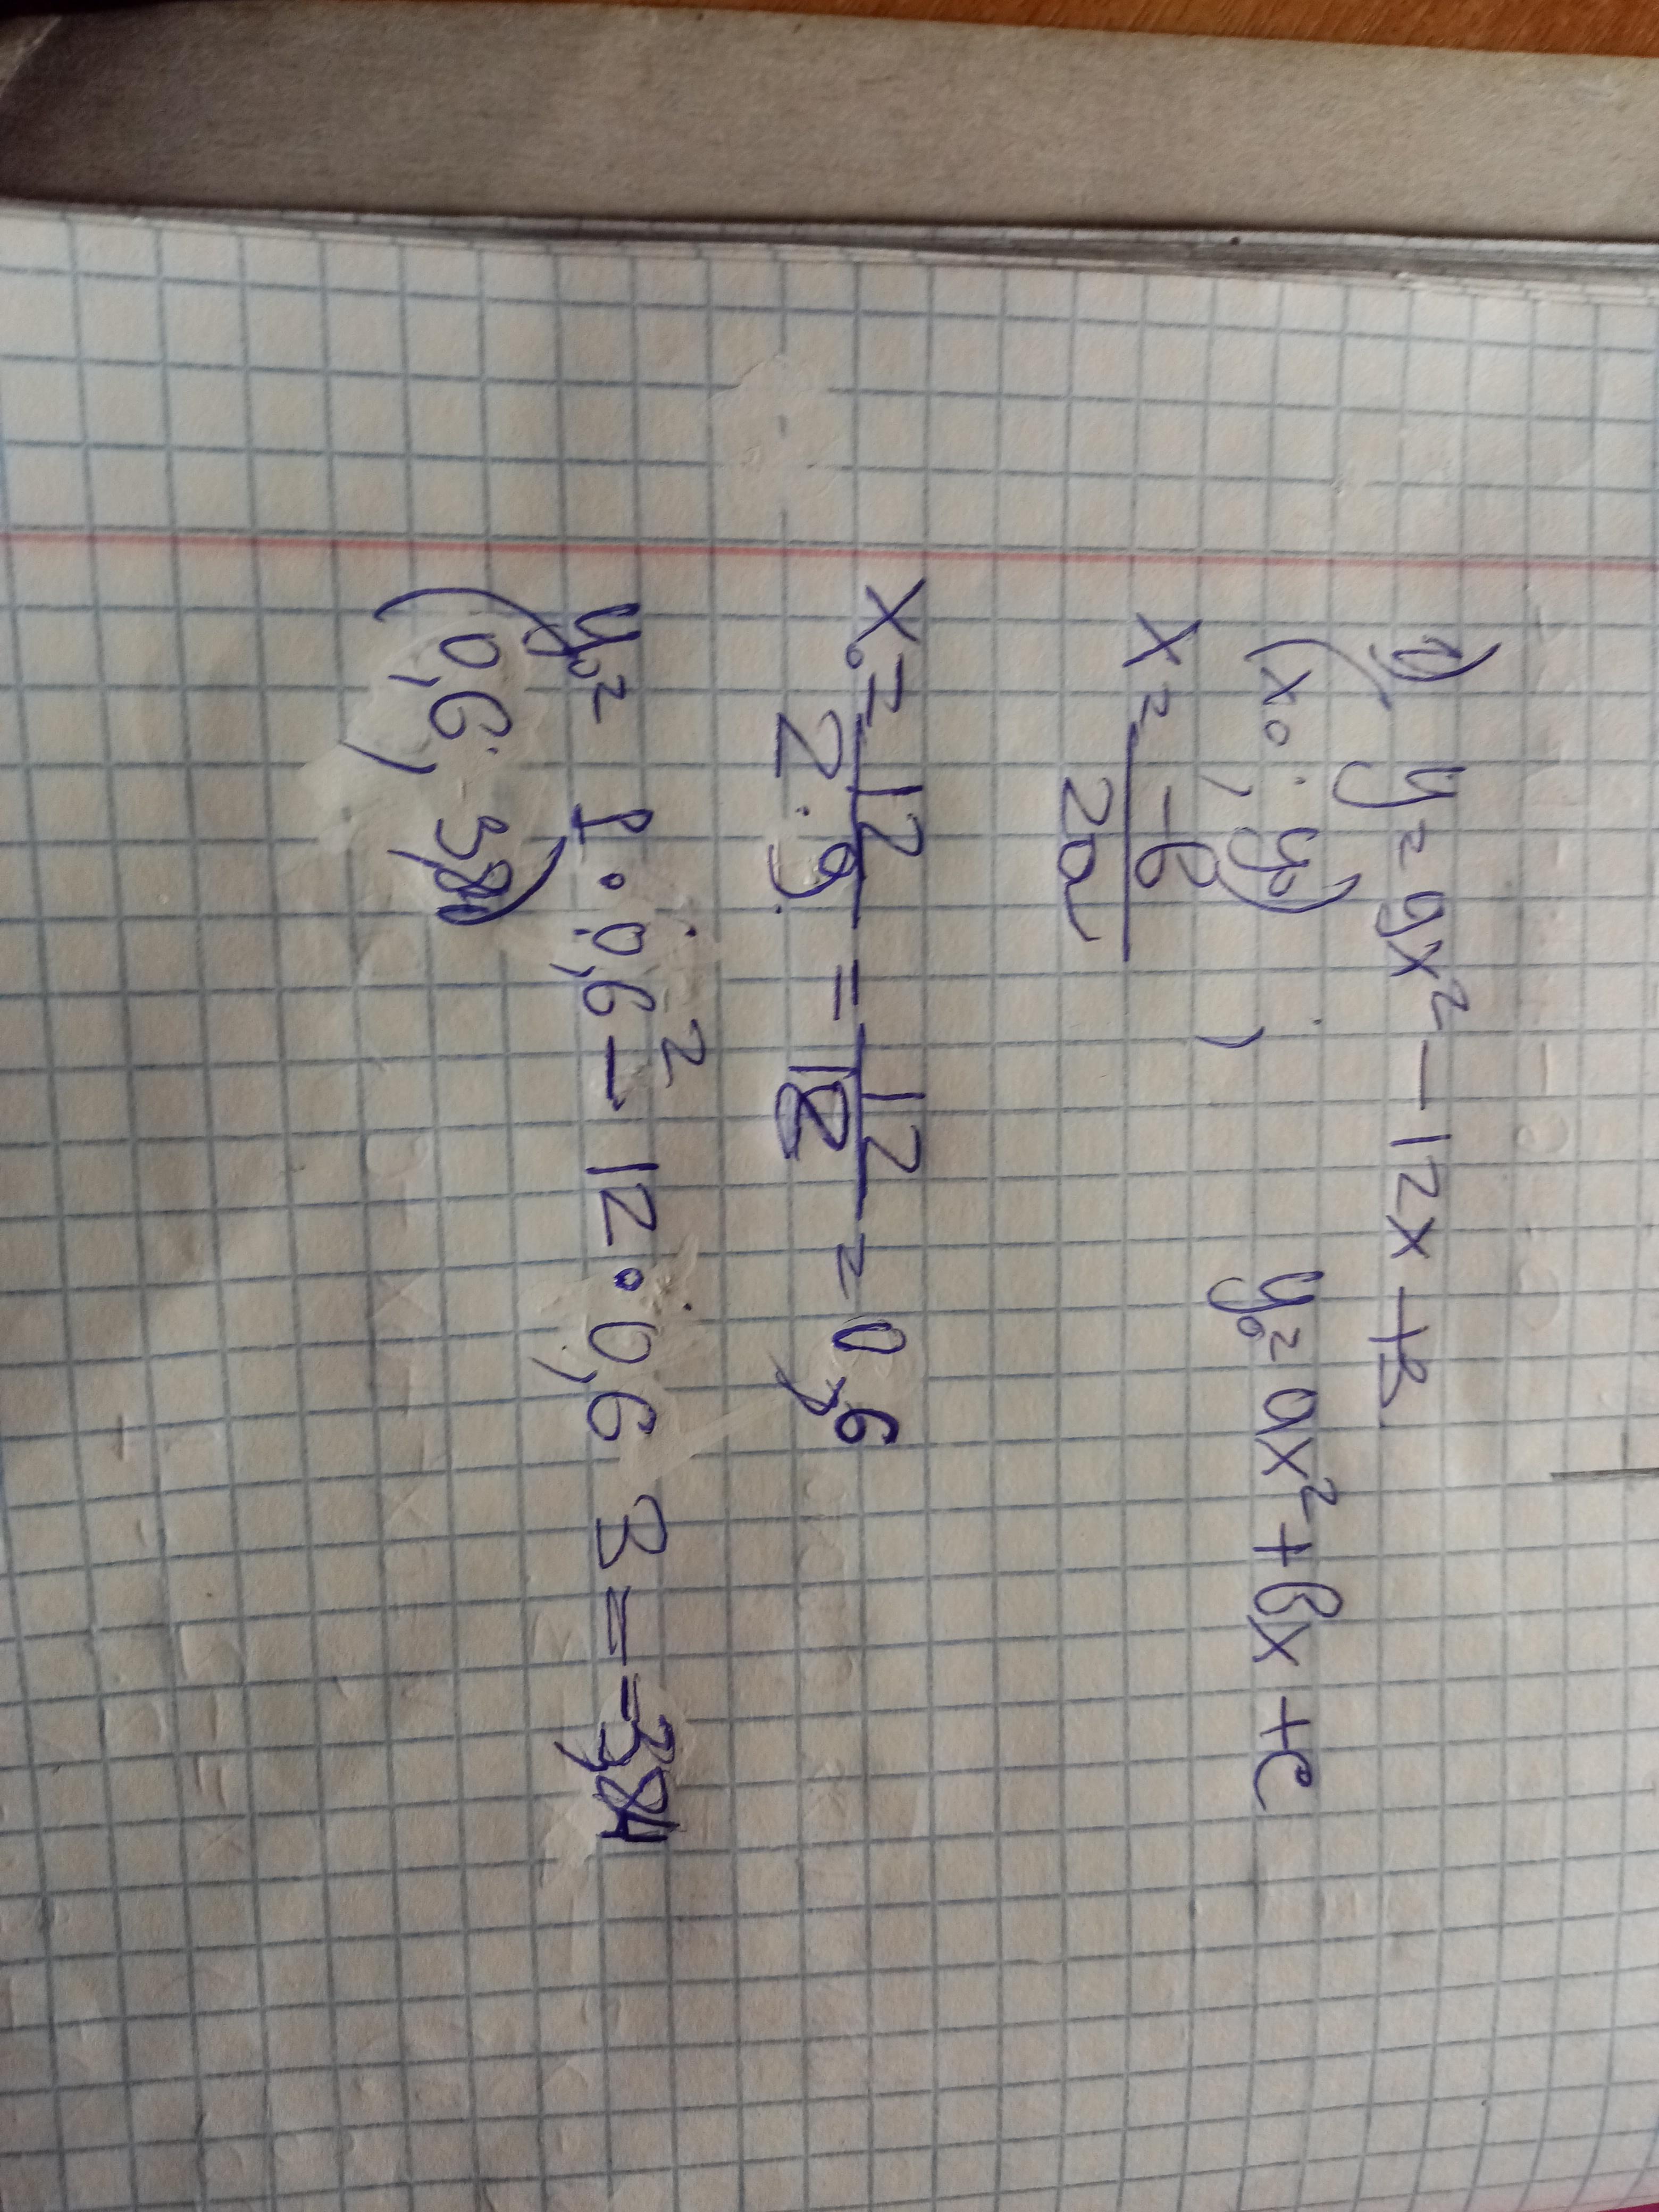 1) y = 9x² - 12x + 3
(x₀ ; y₀) y₀ = ax² + вx + c
x = -в/2a
x₀ = 12/2·9 = 12/18 = 0,6
y₀ = 1·0,6² - 12·0,6 3 = -3,84
(0,6; 3,8)